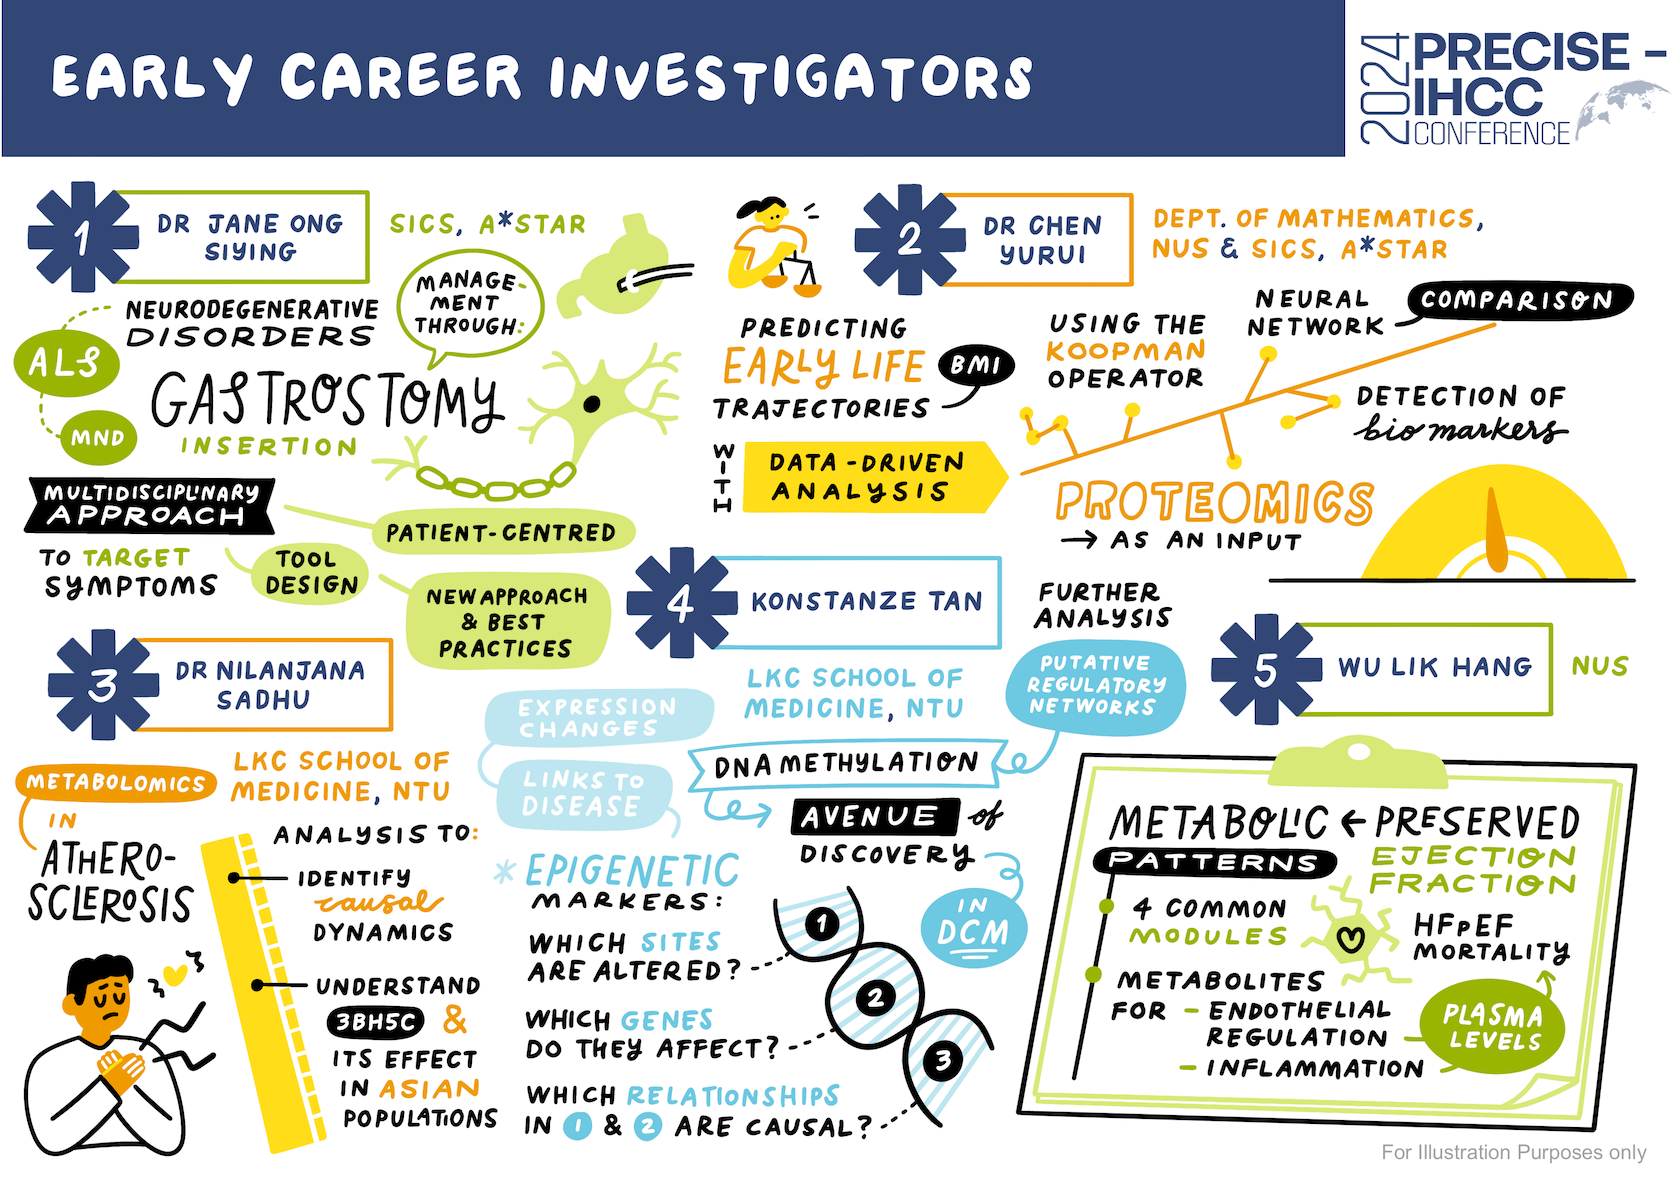 EARLY CAREER INVESTIGATORS
2024
PRECISE -
IHCC
CONFERENCE
1
DR JANE ONG
SIYING
SICS, A*STAR
NEURODEGENERATIVE
DISORDERS
ALS
MND
MANAGE-
MENT
THROUGH:
GASTROSTOMY
INSERTION
MULTIDISCIPLINARY
APPROACH
TO TARGET
SYMPTOMS
TOOL
DESIGN
PATIENT-CENTRED
NEW APPROACH
& BEST
PRACTICES
2
DR CHEN
YURUI
DEPT. OF MATHEMATICS,
NUS & SICS, A*STAR
PREDICTING
EARLY LIFE
BMI
TRAJECTORIES
WITH
DATA-DRIVEN
ANALYSIS
USING THE
KOOPMAN
OPERATOR
NEURAL
NETWORK
COMPARISON
DETECTION OF
biomarkers
PROTEOMICS
→ AS AN INPUT
3
DR NILANJANA
SADHU
LKC SCHOOL OF
MEDICINE, NTU
METABOLOMICS
IN
ATHERO-
SCLEROSIS
ANALYSIS TO:
IDENTIFY
causal
DYNAMICS
UNDERSTAND
3BH5C &
ITS EFFECT
IN ASIAN
POPULATIONS
4
KONSTANZE TAN
LKC SCHOOL OF
MEDICINE, NTU
FURTHER
ANALYSIS
PUTATIVE
REGULATORY
NETWORKS
EXPRESSION
CHANGES
LINKS TO
DISEASE
DNA METHYLATION
AVENUE of
DISCOVERY
IN
DCM
* EPIGENETIC
MARKERS:
WHICH SITES
ARE ALTERED?
1
WHICH GENES
DO THEY AFFECT?
2
WHICH RELATIONSHIPS
IN 1 & 2 ARE CAUSAL?
3
5
WU LIK HANG
NUS
METABOLIC ← PRESERVED
PATTERNS
EJECTION
FRACTION
4 COMMON
MODULES
HFpEF
MORTALITY
METABOLITES
FOR - ENDOTHELIAL
REGULATION
- INFLAMMATION
PLASMA
LEVELS
For Illustration Purposes only